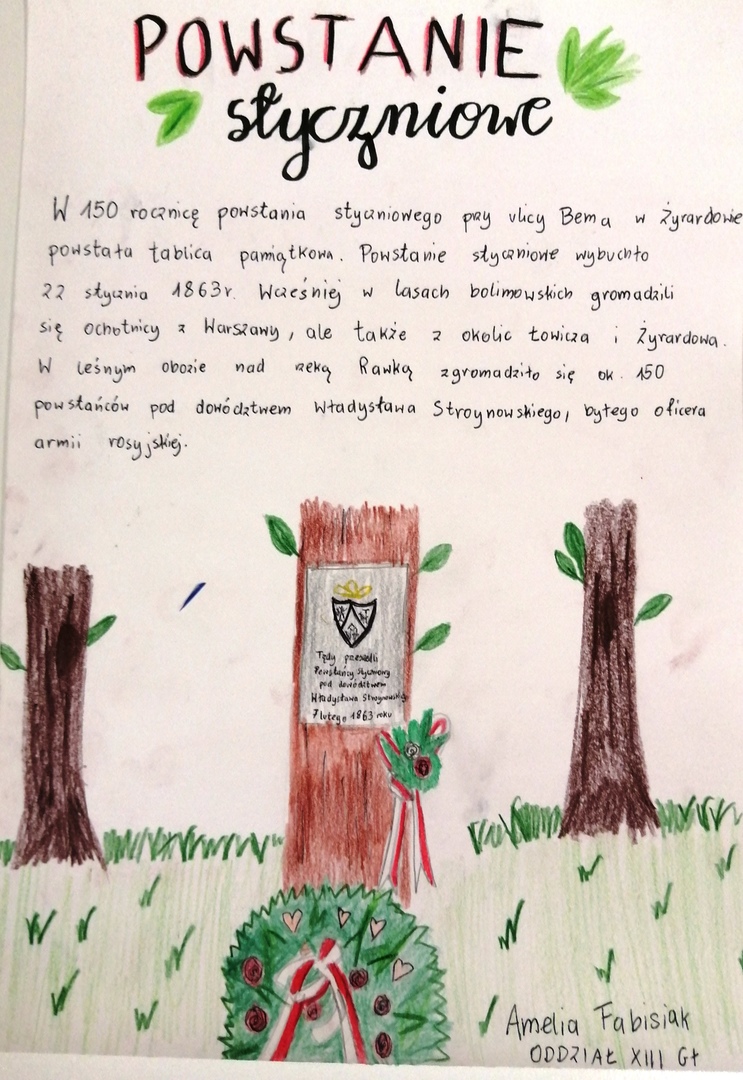 POWSTANIE
styczniowe
W 150 rocznicę powstania styczniowego przy ulicy Bema w Żyrardowie
powstała tablica pamiątkowa. Powstanie styczniowe wybuchło
22 stycznia 1863r. Wcześniej w lasach bolimowskich gromadzili
się ochotnicy z Warszawy, ale także z okolic Łowicza i Żyrardowa.
W leśnym obozie nad rzeką Rawką zgromadziło się ok. 150
powstańców pod dowództwem Władysława Stroynowskiego, byłego oficera
armii rosyjskiej.
Tędy przeszli
Powstańcy Styczniowy
pod dowództwem
Władysława Stroynowskiego
7 lutego 1863 roku
Amelia Fabisiak
ODDZIAŁ XIII GŁ